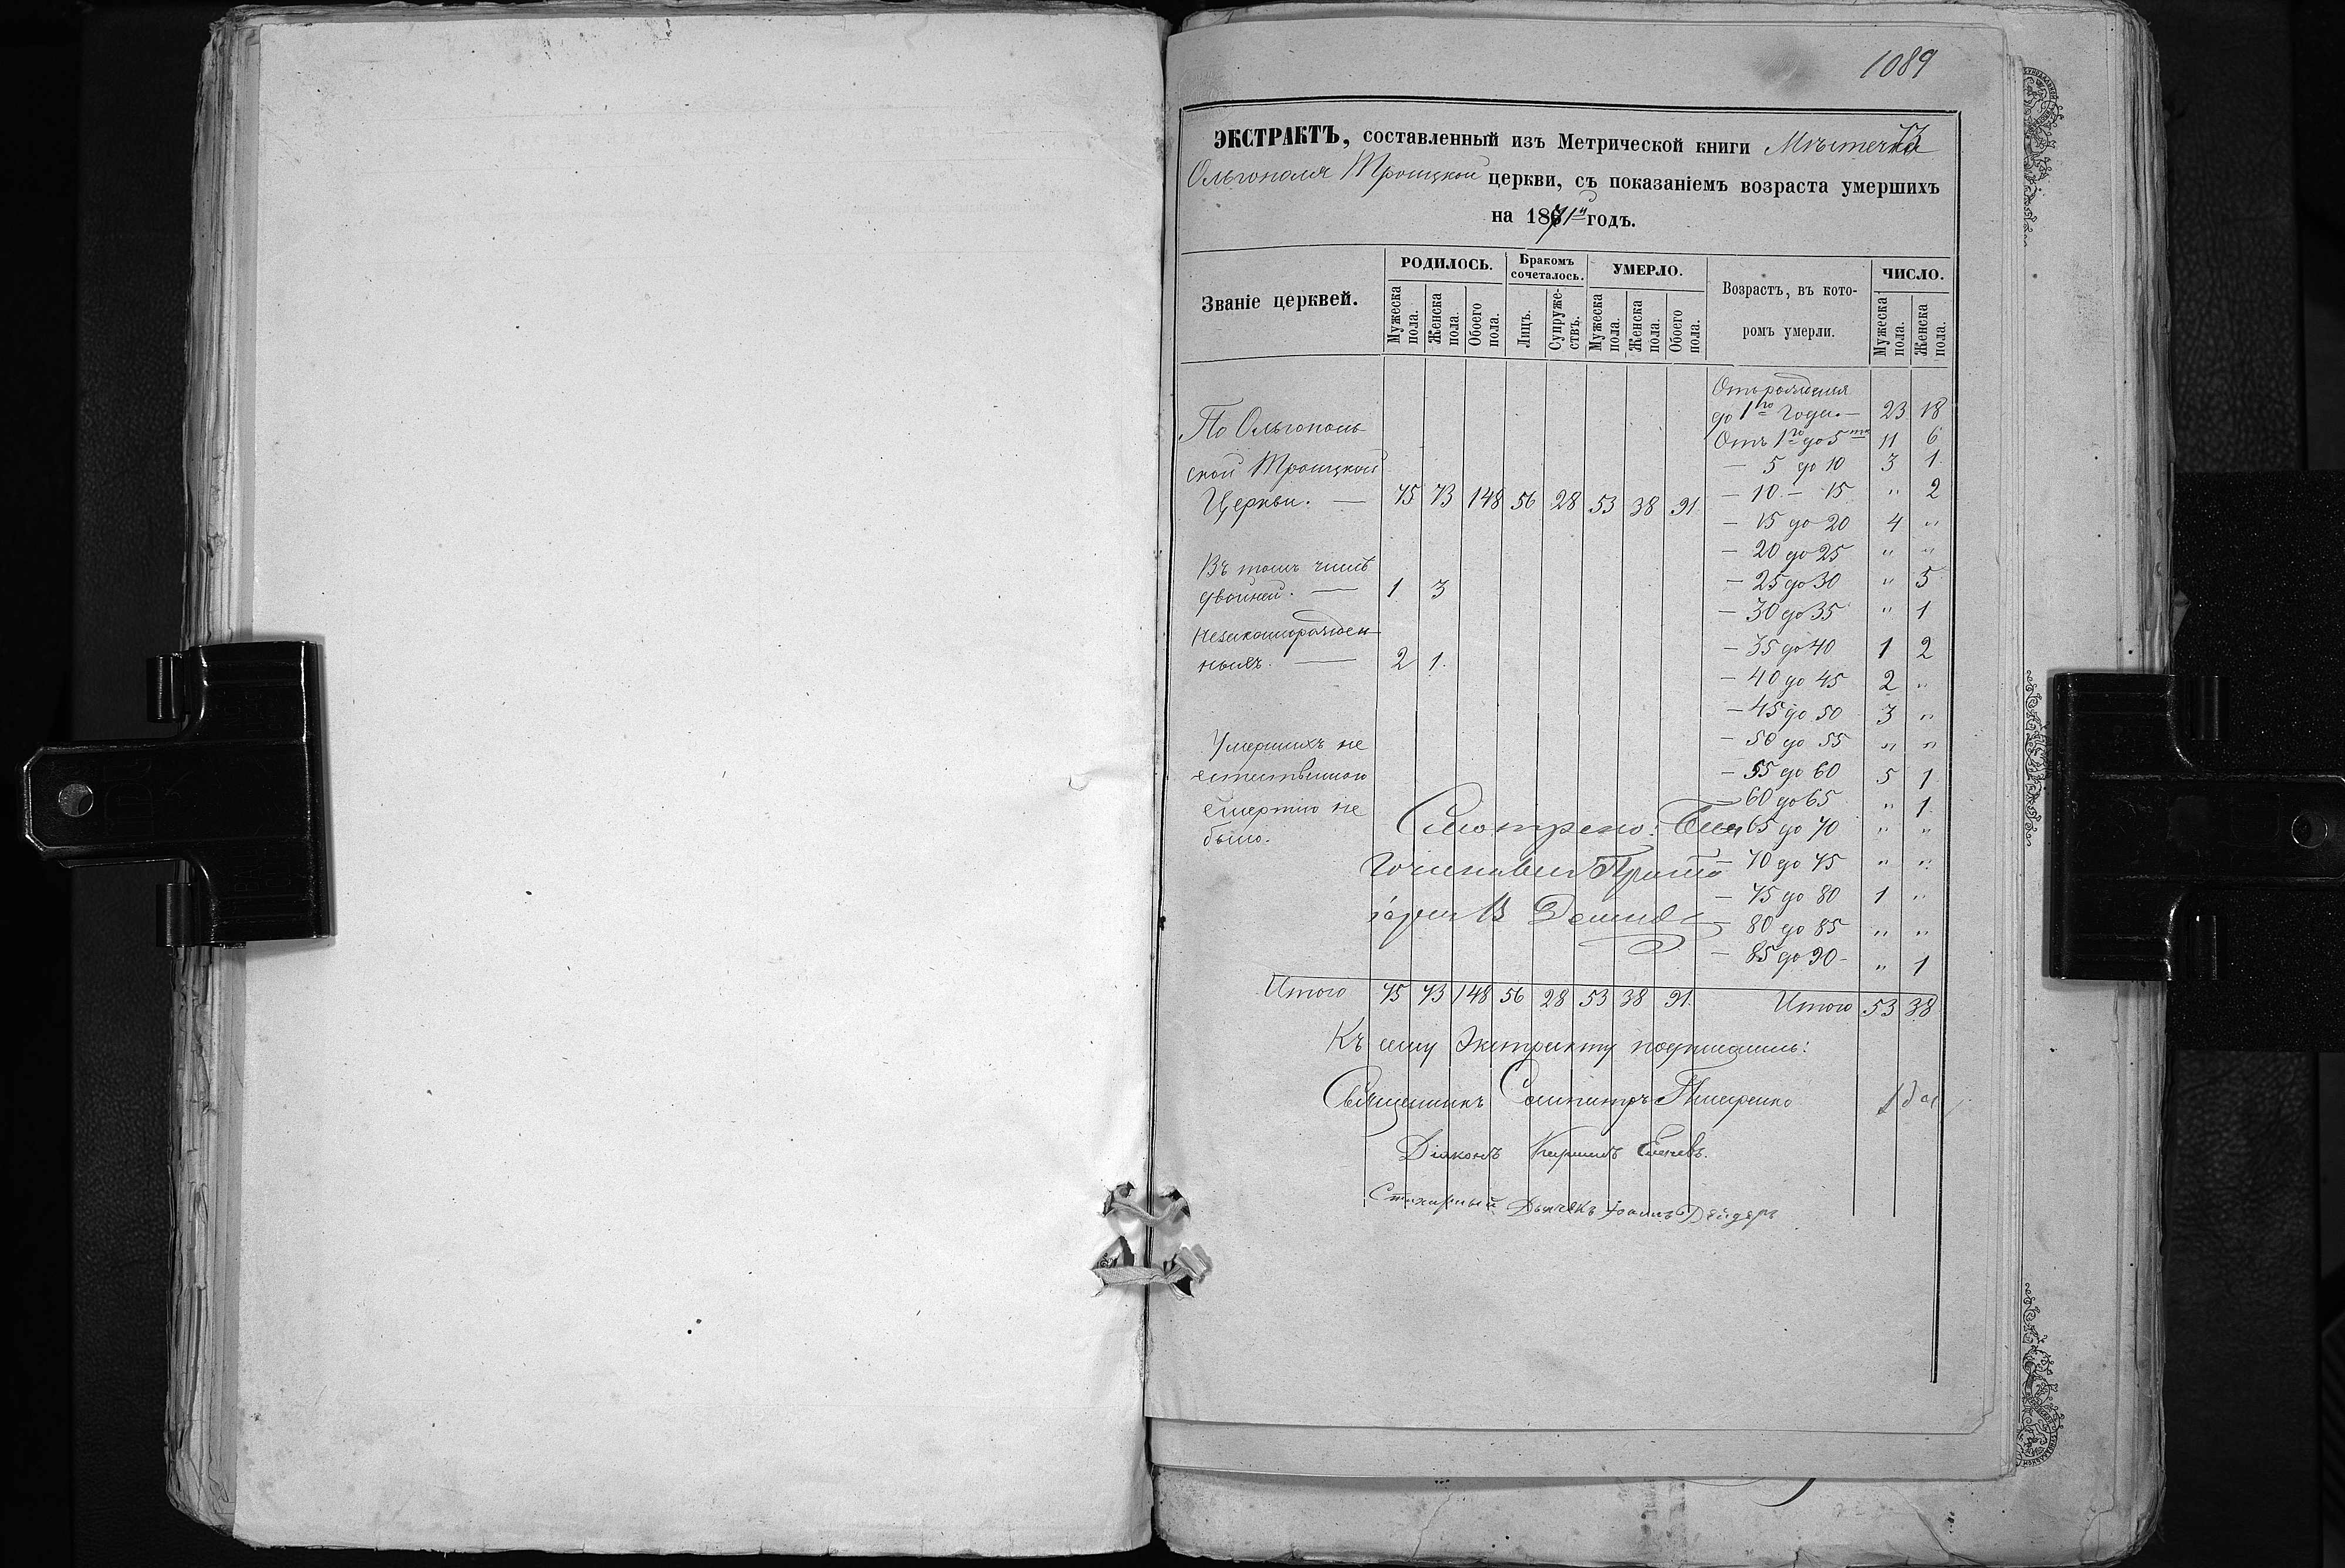 1089
ЭКСТРАКТЪ, составленный изъ Метрической книги Мѣстечка
Ольгополя Троицкой церкви, съ показаніемъ возраста умершихъ
на 1871й годъ.
Званіе церквей.
РОДИЛОСЬ. Бракомъ сочеталось. УМЕРЛО. Возрастъ, въ которомъ умерли. ЧИСЛО.
Мужеска пола. Женска пола. Обоего пола. Лицъ. Супружествъ. Мужеска пола. Женска пола. Обоего пола. Мужеска пола. Женска пола.
По Ольгополь-
ской Троицкой
Церкви. — 75 73 148 56 28 53 38 91
Въ томъ числѣ
двойней. — 1 3
Незаконорожден-
ныхъ. — 2 1.
Умершихъ не
естественною
смертію не
было.
Отъ рожденія
до 1го года. — 23 18
Отъ 1го до 5ти 11 6
— 5 до 10 3 1
— 10 — 15 " 2
— 15 до 20 4 "
— 20 до 25 " "
— 25 до 30 " 5
— 30 до 35 " 1
— 35 до 40 1 2
— 40 до 45 2 "
— 45 до 50 3 "
— 50 до 55 " "
— 55 до 60 5 1
— 60 до 65 " 1
65 до 70 " "
— 70 до 75 " "
— 75 до 80 1 "
— 80 до 85 " "
— 85 до 90 " 1
Смотрено: Благочинный Прото
іерей В
Итого 75 73 148 56 28 53 38 91 Итого 53 38
Къ сему Экстракту подписались:
Священникъ
Діаконъ
Стихарный Дьячекъ Іоаннъ